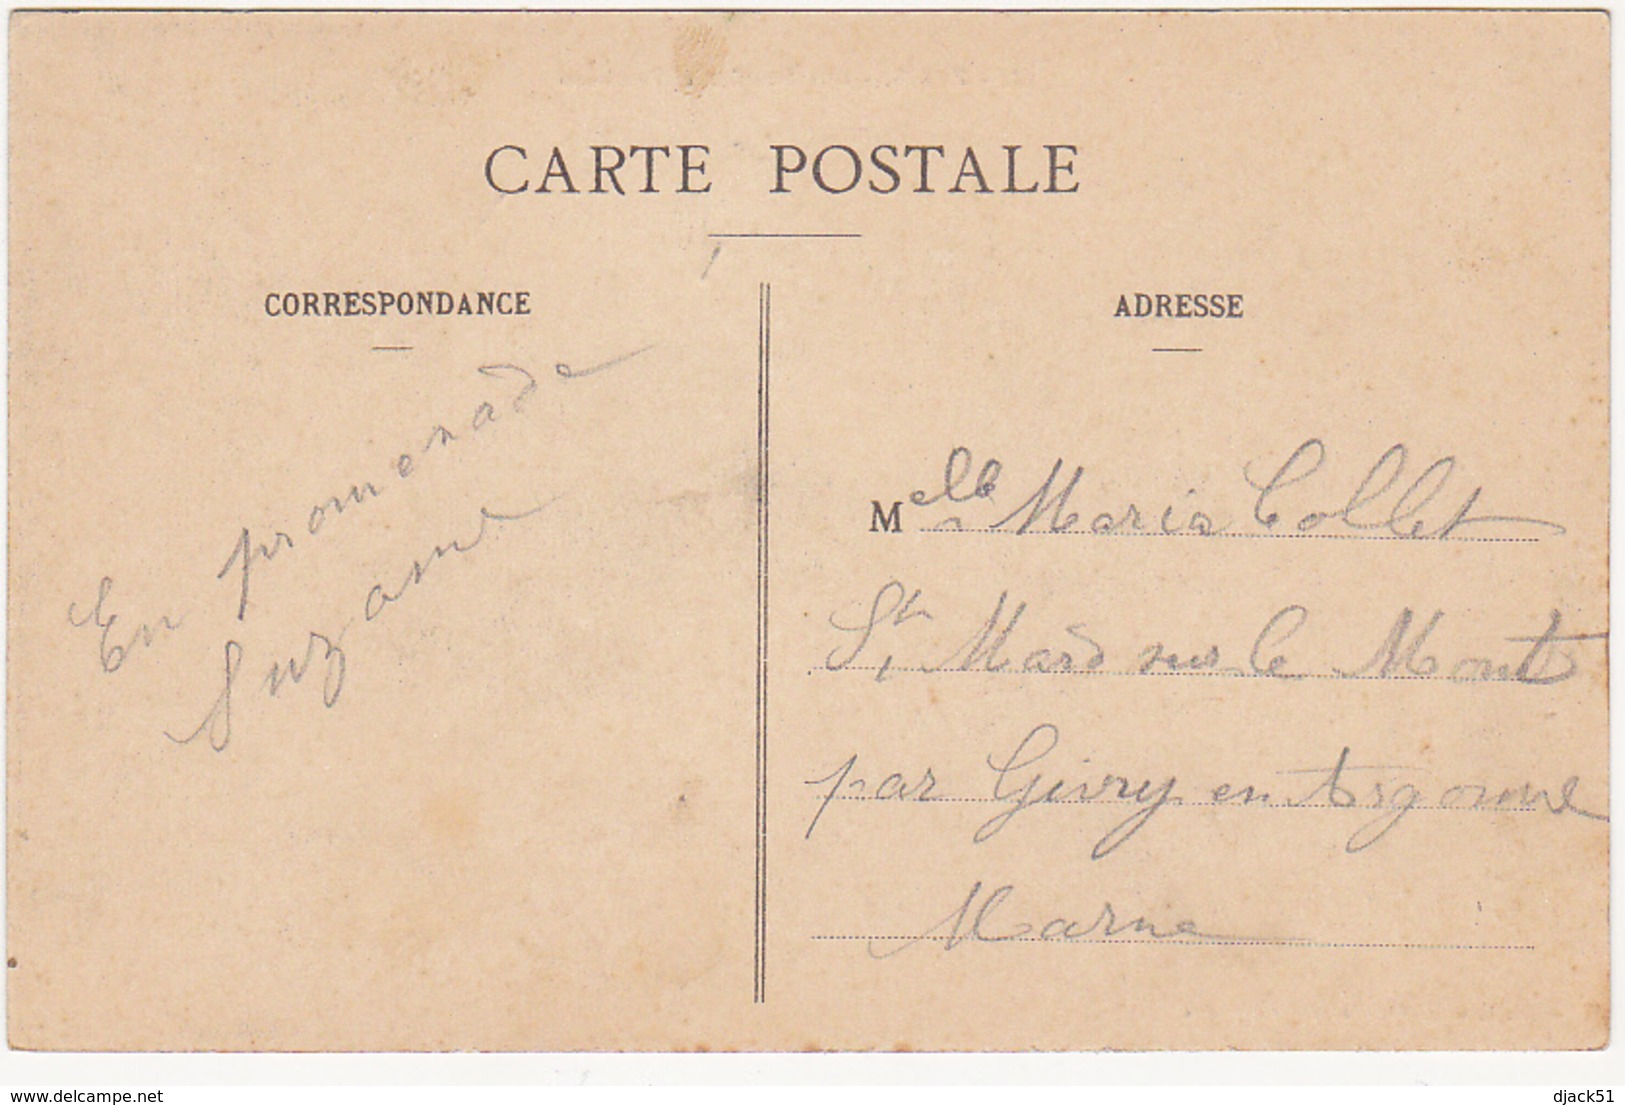 CARTE POSTALE
CORRESPONDANCE
En promenade
Suzanne
ADRESSE
Melle Maria Collet
St Mard sur le Mont
par Givry en Argonne
Marne
www.delcampe.net
djack51